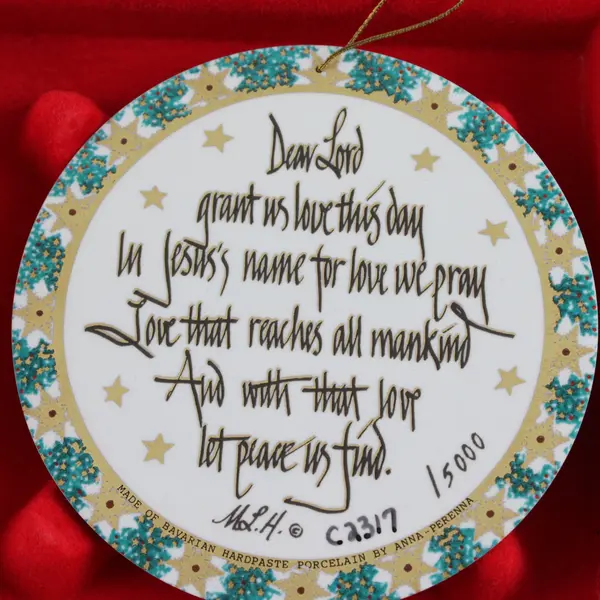 Dear Lord
grant us love this day
In Jesus's name for love we pray
Love that reaches all mankind
And with that love
let peace us find.
M.L.H. © C2317 /5000
MADE OF BAVARIAN HARDPASTE PORCELAIN BY ANNA-PERENNA